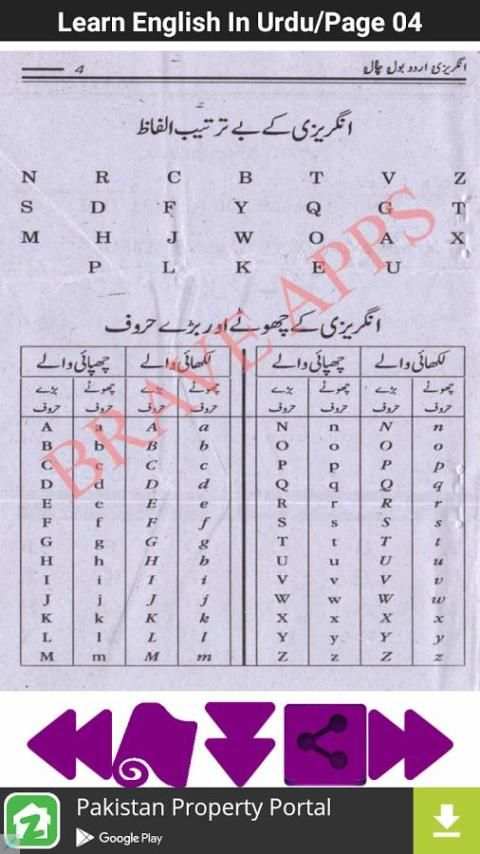 Learn English In Urdu/Page 04
4 انگریزی اردو بول چال
انگریزی کے بے ترتیب الفاظ
N R C B T V Z
S D F Y Q G T
M H J W O A X
P L K E U
انگریزی کے چھوٹے اور بڑے حروف
چھپائی والے لکھائی والے چھپائی والے لکھائی والے
بڑے حروف چھوٹے حروف بڑے حروف چھوٹے حروف بڑے حروف چھوٹے حروف بڑے حروف چھوٹے حروف
A a A a N n N n
B b B b O o O o
C c C c P p P p
D d D d Q q Q q
E e E e R r R r
F f F f S s S s
G g G g T t T t
H h H b U u U u
I i I i V v V v
J j J j W w W w
K k K k X x X x
L l L l Y y Y y
M m M m Z z Z z
BRAVE APPS
Pakistan Property Portal
Google Play